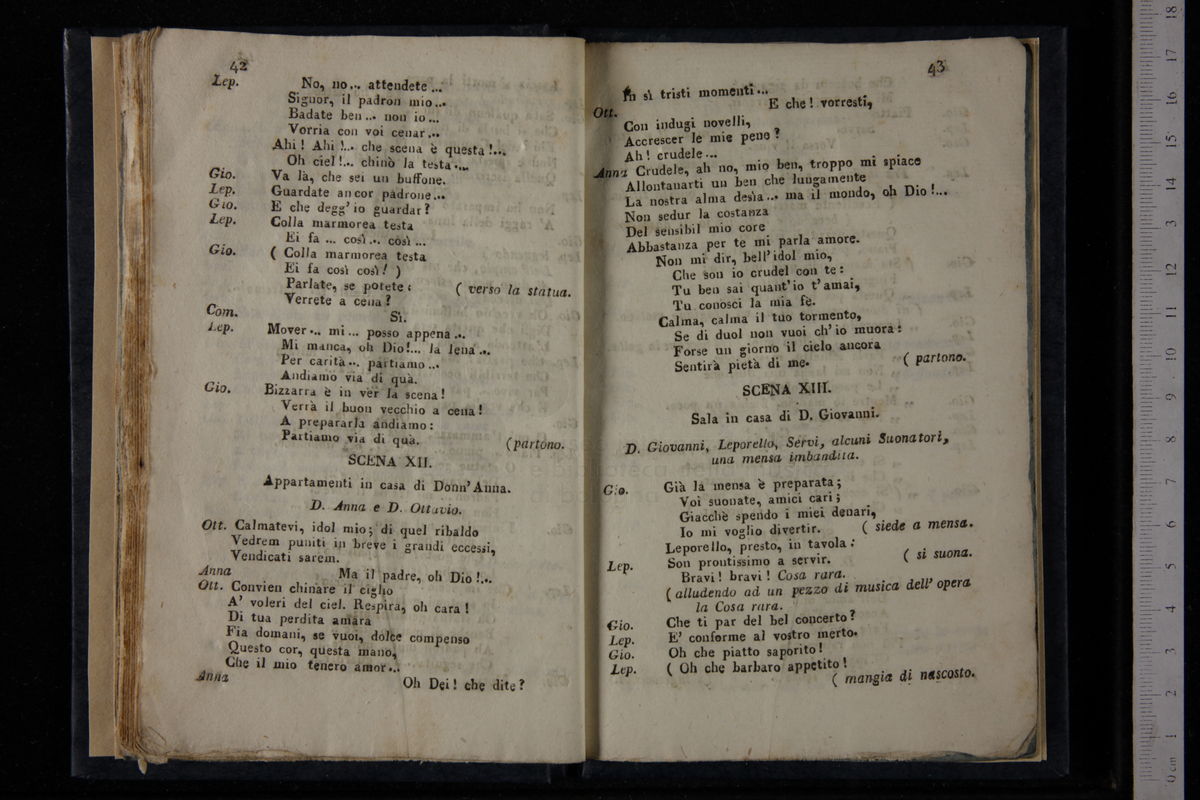 42
Lep. No, no... attendete...
Signor, il padron mio...
Badate ben... non io...
Vorria con voi cenar...
Ahi! Ahi!... che scena è questa!...
Oh ciel!... chinò la testa....
Gio. Va là, che sei un buffone.
Lep. Guardate ancor padrone...
Gio. E che degg'io guardar?
Lep. Colla marmorea testa
Ei fa ... così... così...
Gio. ( Colla marmorea testa
Ei fa così così! )
Parlate, se potete: ( verso la statua.
Verrete a cena?
Com. Sì.
Lep. Mover... mi... posso appena...
Mi manca, oh Dio!... la lena...
Per carità... partiamo...
Andiamo via di quà.
Gio. Bizzarra è in ver la scena!
Verrà il buon vecchio a cena!
A prepararla andiamo:
Partiamo via di quà. (partono.
SCENA XII.
Appartamenti in casa di Donn'Anna.
D. Anna e D. Ottavio.
Ott. Calmatevi, idol mio; di quel ribaldo
Vedrem puniti in breve i grandi eccessi,
Vendicati sarem.
Anna Ma il padre, oh Dio!...
Ott. Convien chinare il ciglio
A' voleri del ciel. Respira, oh cara!
Di tua perdita amara
Fia domani, se vuoi, dolce compenso
Questo cor, questa mano,
Che il mio tenero amor...
Anna Oh Dei! che dite?
43
In sì tristi momenti...
Ott. E che! vorresti,
Con indugi novelli,
Accrescer le mie pene?
Ah! crudele...
Anna Crudele, ah no, mio ben, troppo mi spiace
Allontanarti un ben che lungamente
La nostra alma desìa... ma il mondo, oh Dio!...
Non sedur la costanza
Del sensibil mio core
Abbastanza per te mi parla amore.
Non mi dir, bell'idol mio,
Che son io crudel con te:
Tu ben sai quant'io t'amai,
Tu conosci la mia fè.
Calma, calma il tuo tormento,
Se di duol non vuoi ch'io muora:
Forse un giorno il cielo ancora
Sentirà pietà di me. ( partono.
SCENA XIII.
Sala in casa di D. Giovanni.
D. Giovanni, Leporello, Servi, alcuni Suonatori,
una mensa imbandita.
Gio. Già la mensa è preparata;
Voi suonate, amici cari;
Giacchè spendo i miei denari,
Io mi voglio divertir. ( siede a mensa.
Leporello, presto, in tavola:
Lep. Son prontissimo a servir. ( si suona.
Bravi! bravi! Cosa rara.
(alludendo ad un pezzo di musica dell'opera
la Cosa rara.
Gio. Che ti par del bel concerto?
Lep. E' conforme al vostro merto.
Gio. Oh che piatto saporito!
Lep. ( Oh che barbaro appetito!
( mangia di nascosto.